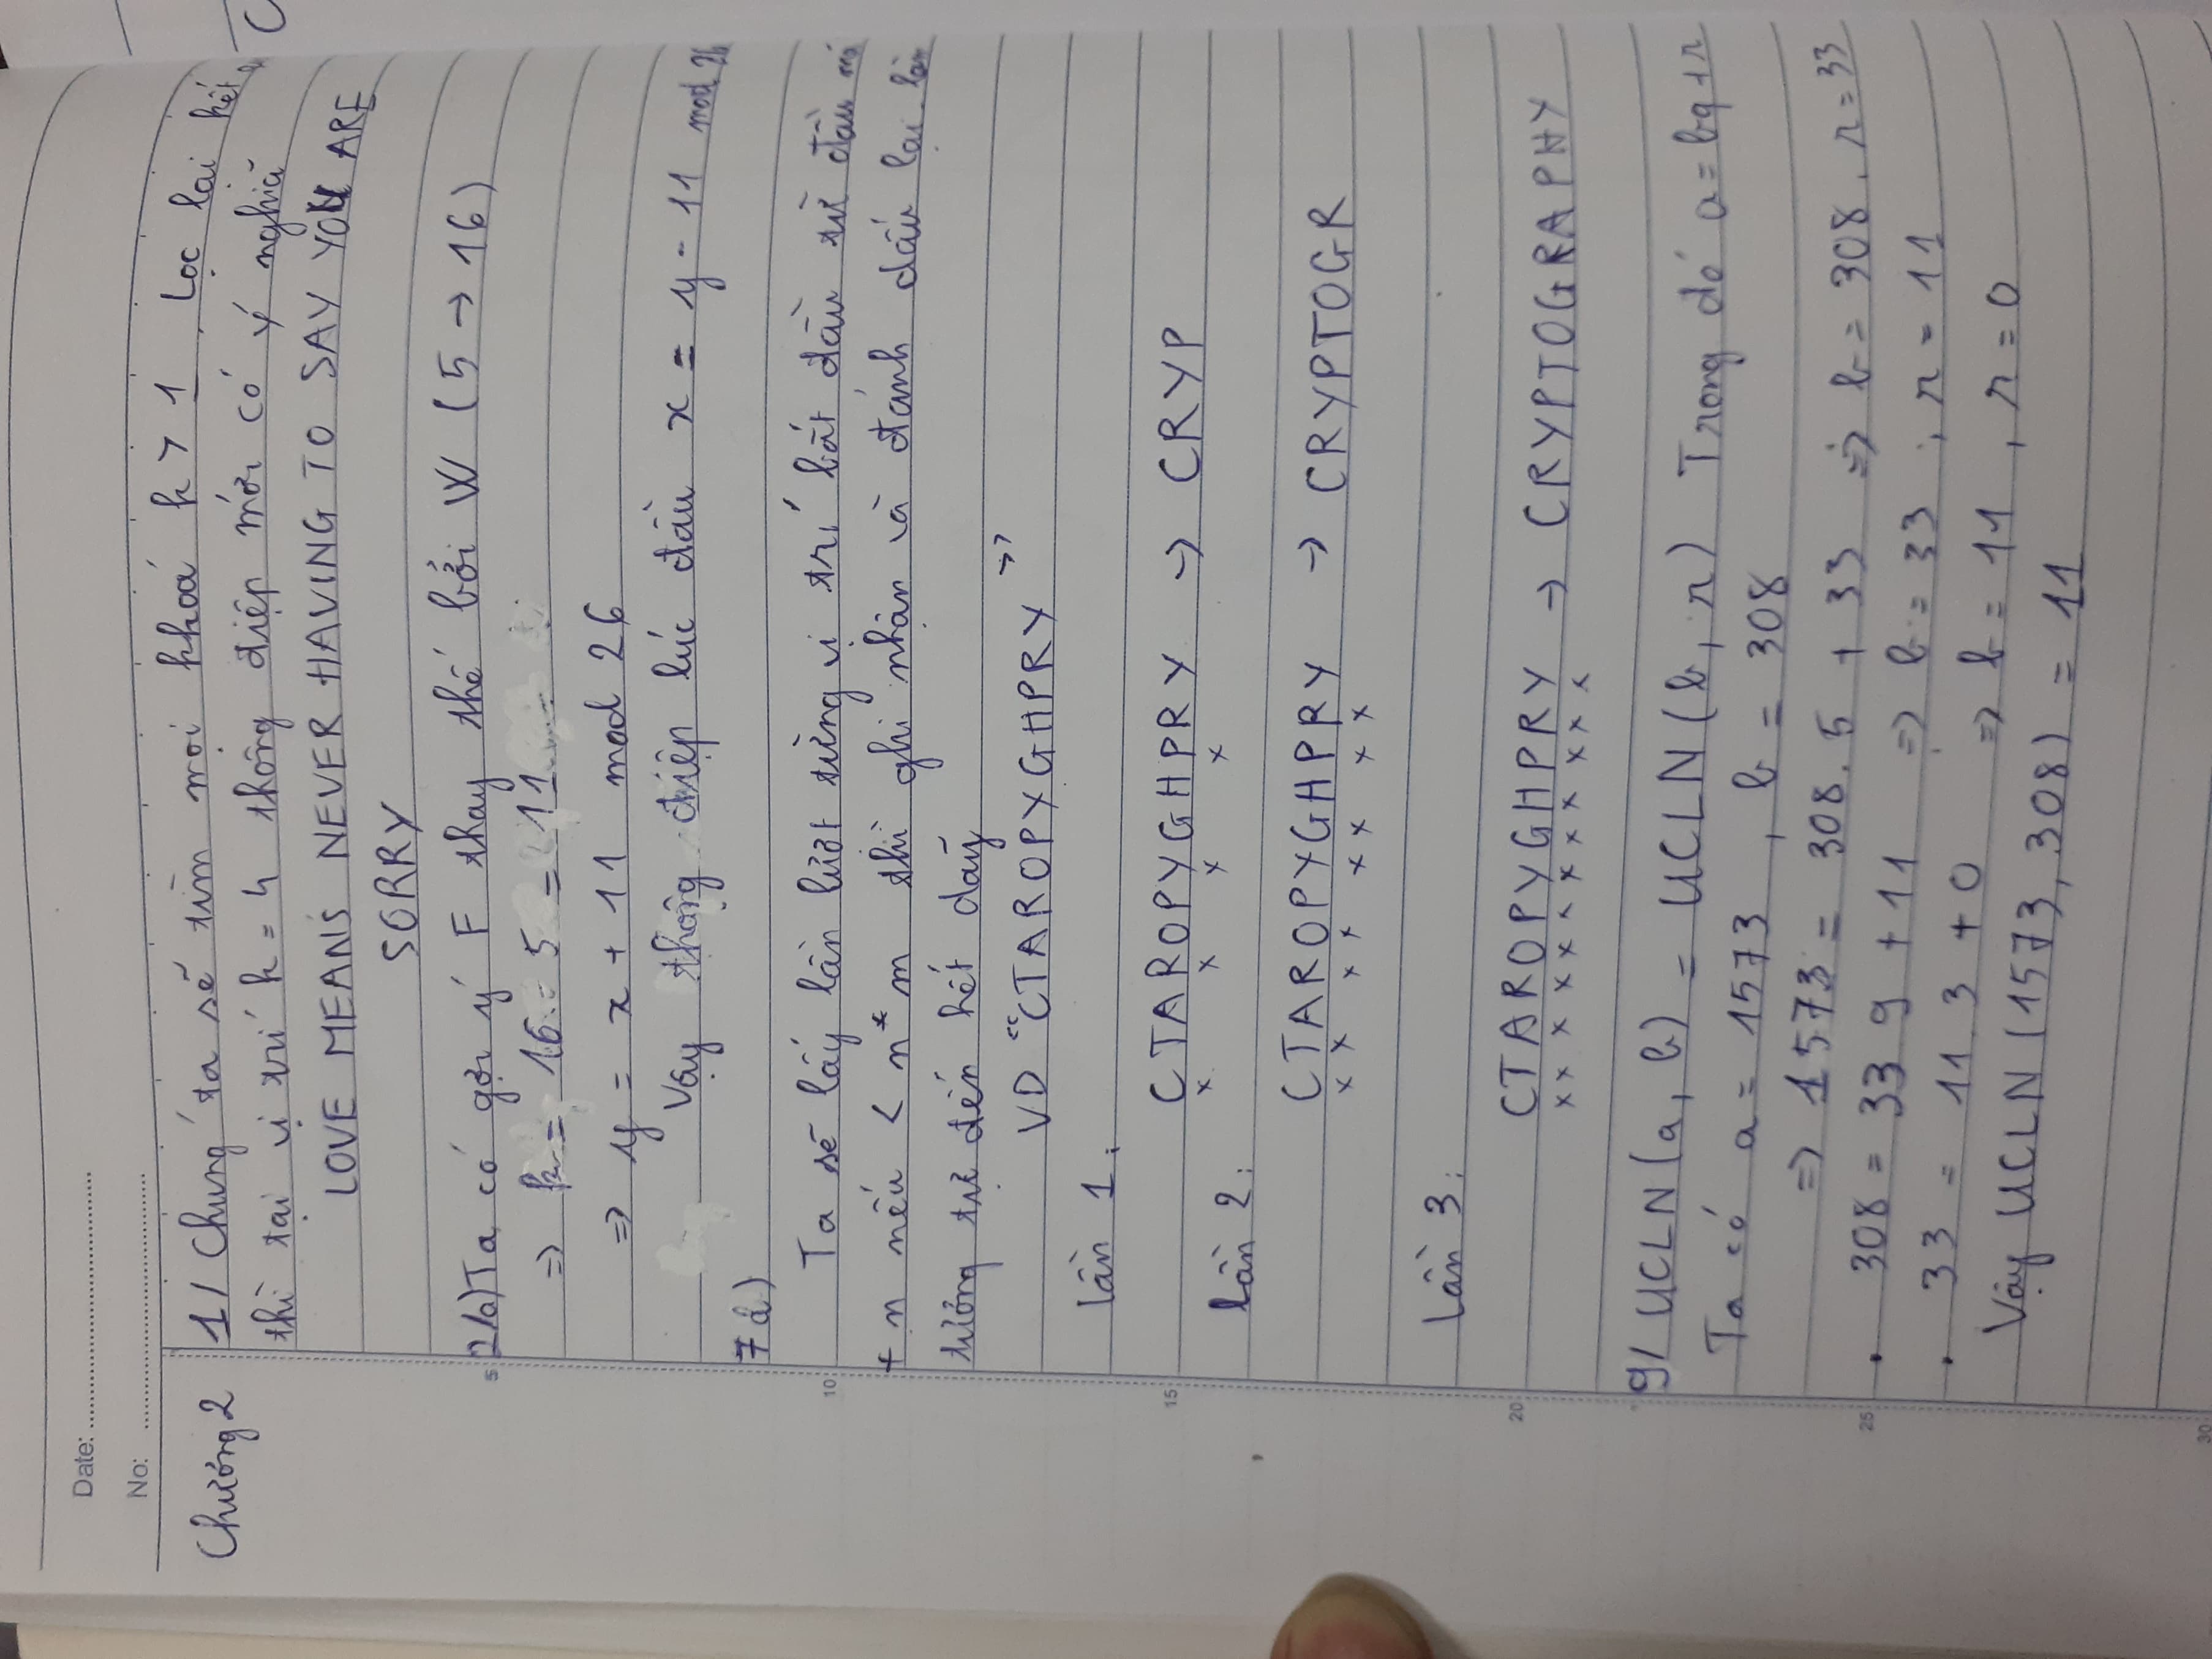 Date:
No:
Chương 2
1/ Chúng ta sẽ tìm mọi khoá k > 1. Lọc lại kết
thì tại vị trí k = 4 thông điệp mới có ý nghĩa
LOVE MEANS NEVER HAVING TO SAY YOU ARE
SORRY
5 2/a) Ta có gợi ý F thay thế bởi W (5 → 16)
⇒ k = 16 - 5 = 11
⇒ y = x + 11 mod 26
Vậy thông điệp lúc đầu x = y - 11 mod 26
7d)
10 Ta sẽ lấy lần lượt từng vị trí bắt đầu từ đầu mà
+ n nếu < n* m thì ghi nhận và đánh dấu lại làm
tương tự đến hết dãy
VD "CTAROPYGHPRY"
Lần 1:
15 CTAROPYGHPRY → CRYP
x x x x
Lần 2:
CTAROPYGHPRY → CRYPTOGR
x x x x x x x x
Lần 3:
20 CTAROPYGHPRY → CRYPTOGRAPHY
x x x x x x x x x x x x
9/ UCLN(a, b) = UCLN(b, r) Trong đó a = bq + r
Ta có a = 1573, b = 308
⇒ 1573 = 308.5 + 33 ⇒ b = 308. r = 33
25 . 308 = 33 9 + 11 ⇒ b = 33 ; r = 11
. 33 = 11.3 + 0 ⇒ b = 11, r = 0
Vậy UCLN(1573, 308) = 11
30